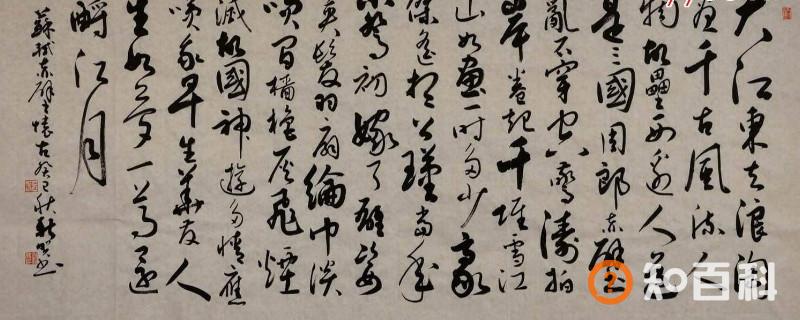 大江東去浪淘
盡千古風流人
物故壘西邊人道
是三國周郎赤壁
亂石穿空驚濤拍
岸卷起千堆雪江
山如畫一時多少豪
傑遙想公瑾當年
小喬初嫁了雄姿
英發羽扇綸巾談
笑間檣櫓灰飛煙
滅故國神遊多情應
笑我早生華发人
生如夢一尊還
酹江月
蘇軾赤壁懷古癸巳秋
知百科